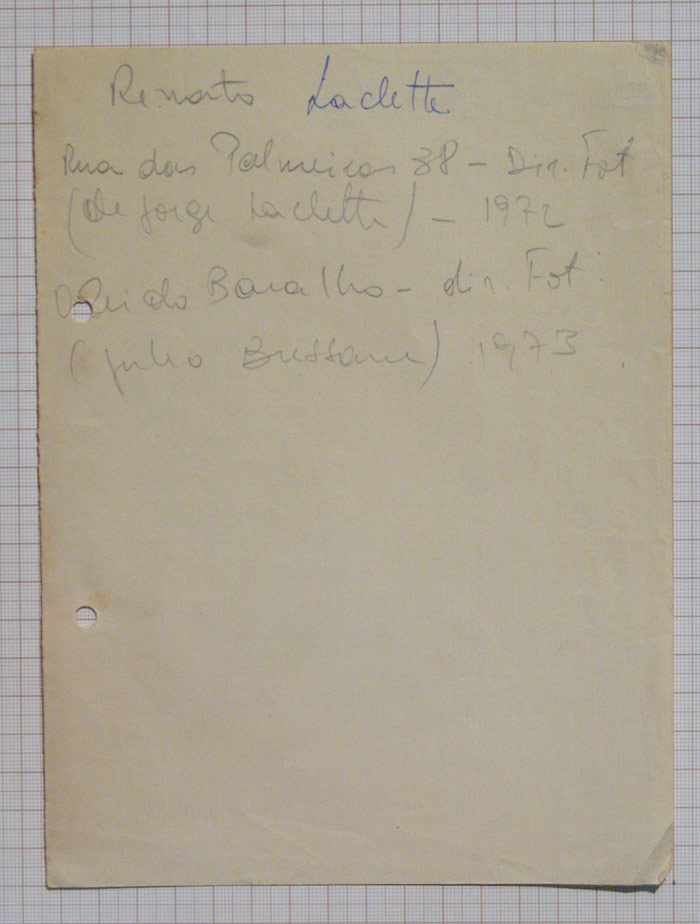 Renato Laclette
Rua das Palmeiras 38 - Dir. Fot.
(de Jorge Laclette) - 1972
O Rei do Baralho - dir. Fot.
(Julio Bressane) 1973